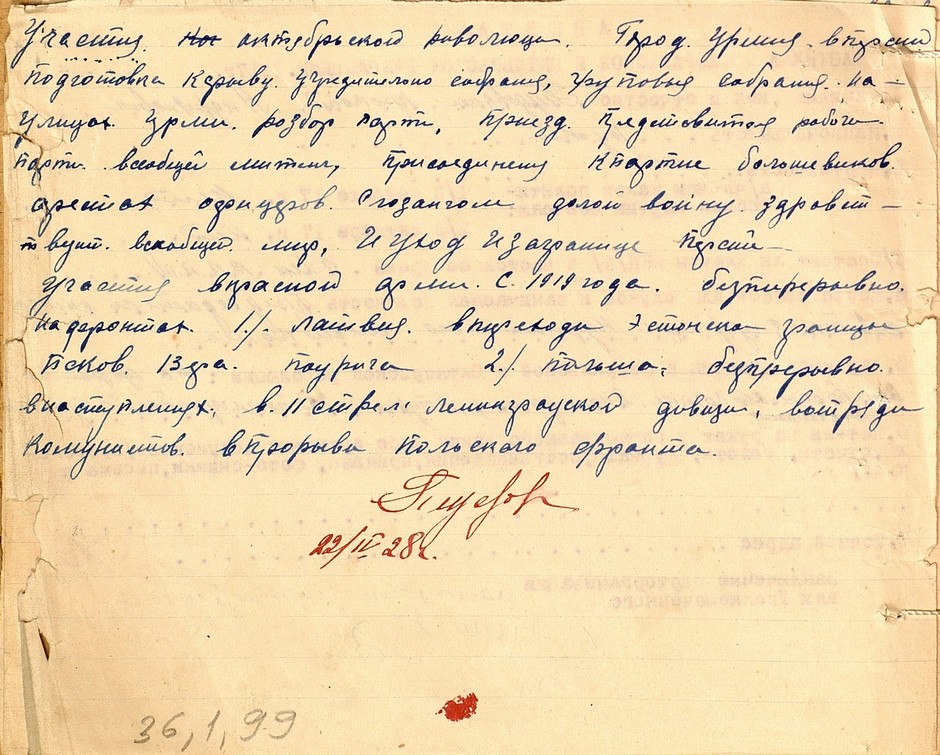 Участия. октябрьской революци. Город. Урмия. вперсии
подготовка Керыву. Учредительно собрания, групповые собрания. на—
улицах. Урми. розбор парти, Приезд. Представителя рабоч.
парти. всеобщей митенг, присоединения Кпартие большевиков.
арестах офицеров. Слозангом долой войну. здравст—
твует. всеобщей. мир, И уход Иззаграница Персии—
Участия вкрасной арми. С. 1919 года. безпирерывно.
на фронтах. 1./. Латвия. впереходи Эстонска границы
Псков. 2./. Польша, безпрерывно
внаступлениях. в. 11 стрел. Ленинградской дивизи, вотряди
Комунистов. впрорыви Польского фронта.
22/IV 28г.
36,1,99